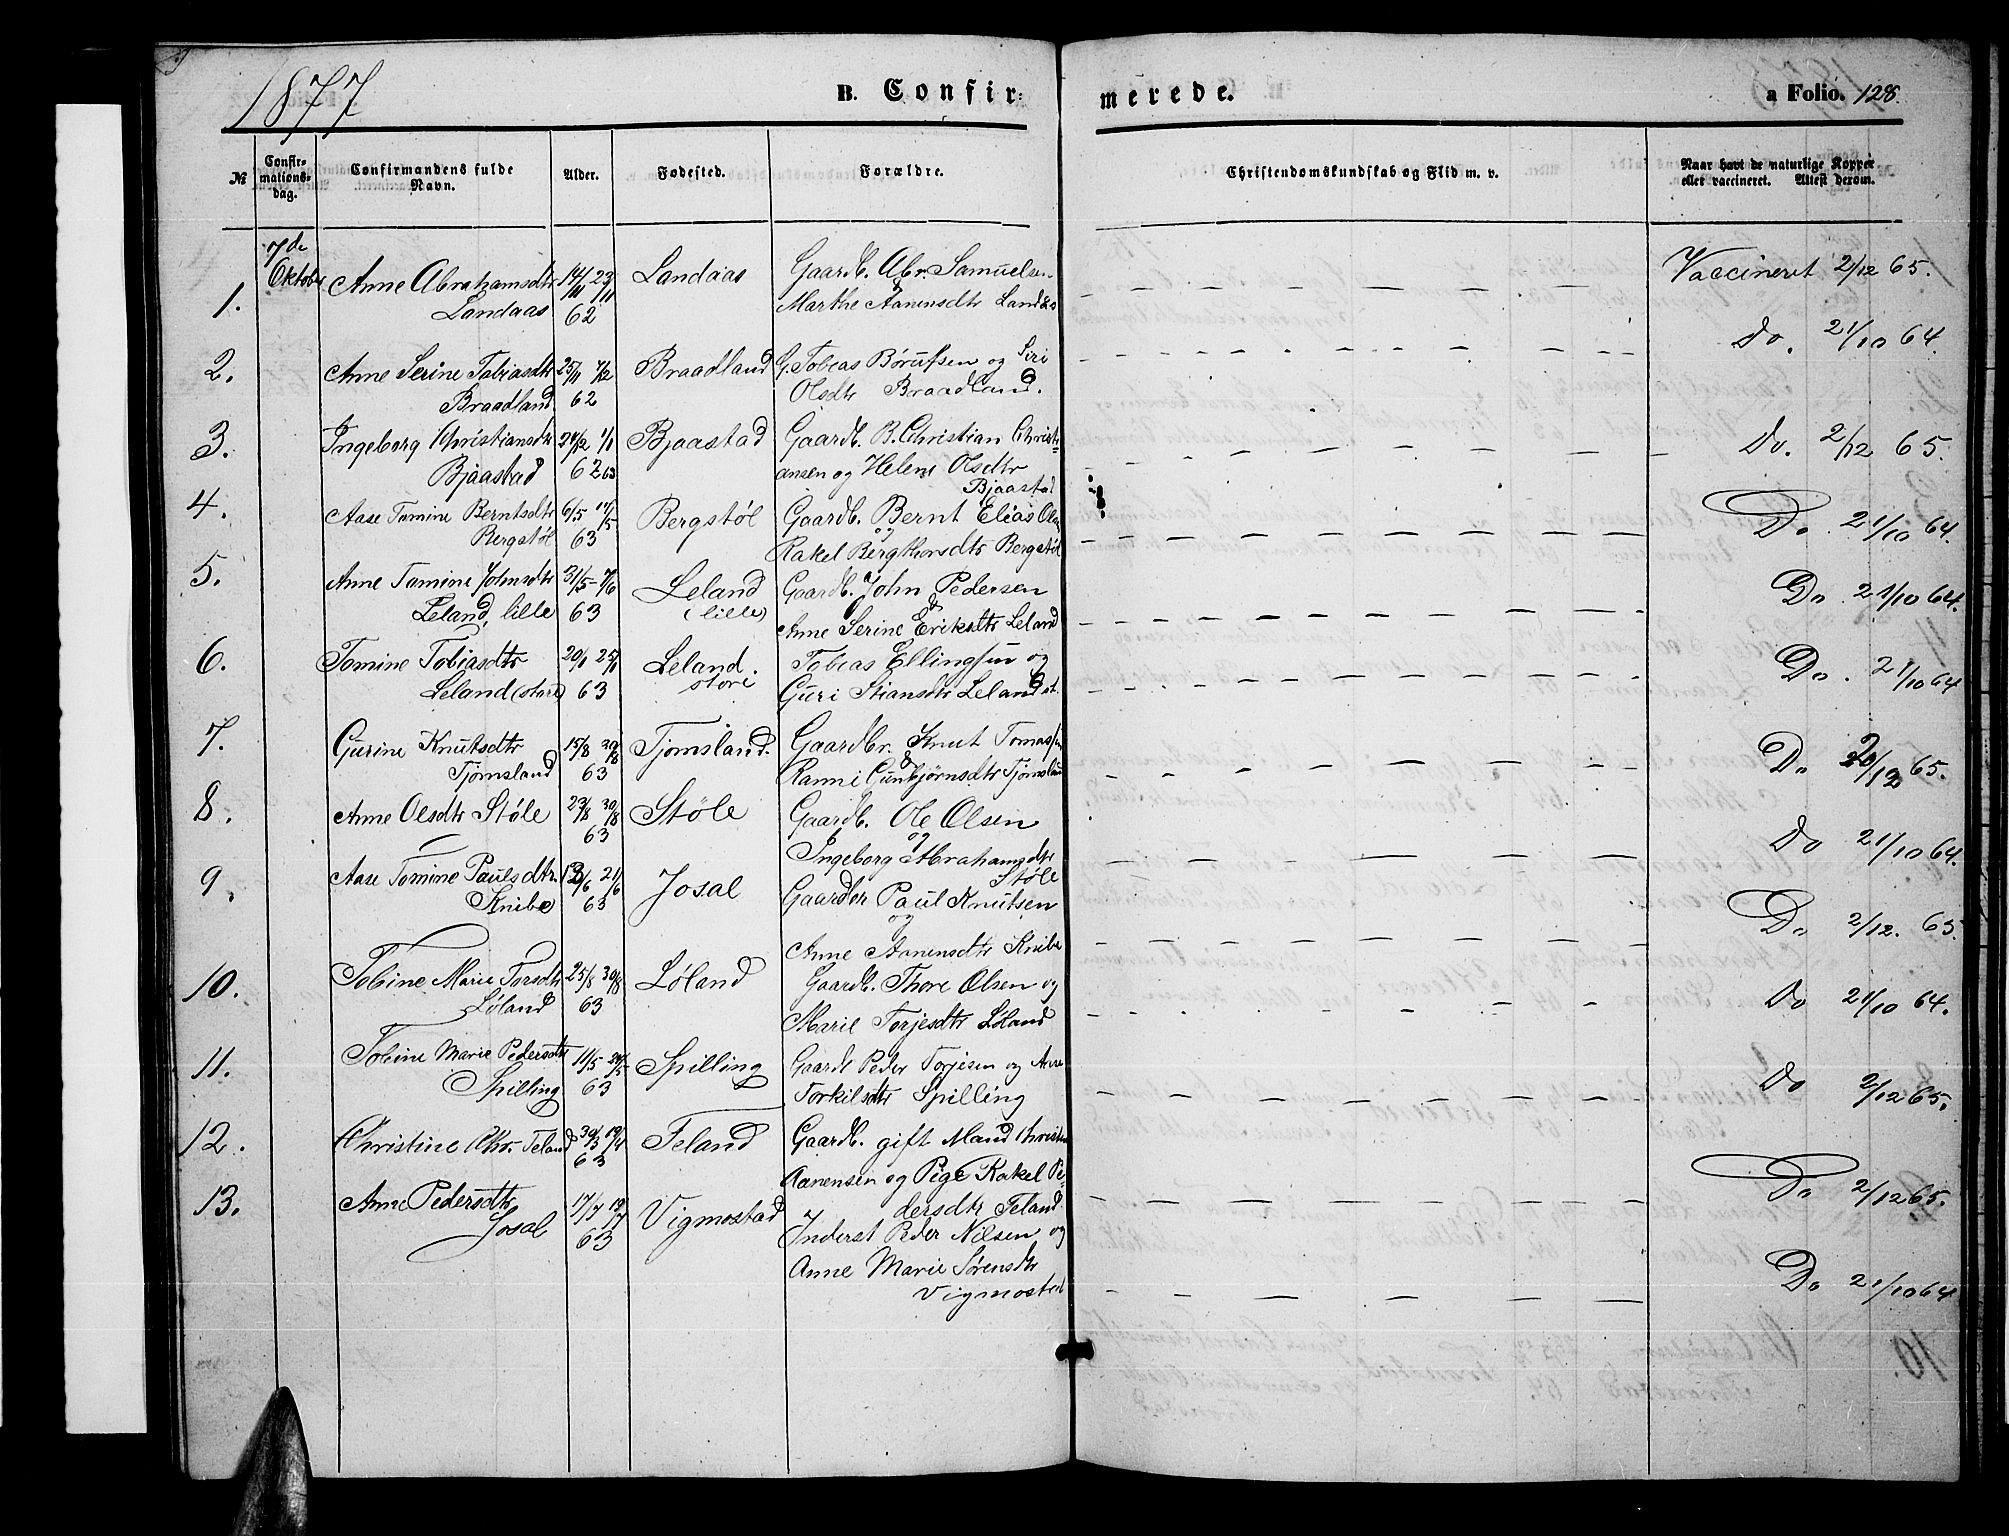 1877
B. Confir-
merede.
a Folio. 128.
№
Confir-
mations-
dag.
Confirmandens fulde
Navn.
Alder.
Fødested.
Forældre.
Christendomskundskab og Flid m. v.
Naar havt de naturlige Kopper
eller vaccineret. Attest derom.
7de
Oktober
1. Anne Abrahamsdtr 14/11 23/11 Landaas Gaardb. Abr. Samuelsen
Landaas 62 & Marthe Aanensdtr Landaas
Vaccineret 2/12 65.
2. Anne Serine Tobiasdtr 25/11 7/12 Braadland G. Tobias Börufsen og Siri
Braadland 62 Olsdtr Braadland.
Do. 21/10 64.
3. Ingeborg Christiansdtr 1/1 Bjaastad Gaardb. B. Christian Christi-
Bjaastad 62 63 ansen og Helene Olsdtr
Bjaastad
Do. 2/12 65.
4. Aase Tomine Berntsdtr 6/5 17/5 Bergstøl Gaardb. Bernt Elias Olsen
Bergstøl 63 og Rakel Bergthorsdtr Bergstøl
Do. 21/10 64.
5. Anne Tomine Johnsdtr 31/5 - 7/6 Leland Gaardb. John Pedersen
Leland, lille 63 (lille) & Anne Serine Eriksdtr Leland
Do. 21/10 64.
6. Tomine Tobiasdtr Leland Tobias Ellingsen og
Leland (store) 63 store Guri Stiansdtr Leland st.
Do. 21/10 64
7. Gurine Knutsdtr 15/8 30/8 Tjomsland. Gaardbr. Knut Tomassen
Tjomsland 63 & Ranni Gunbjørnsdtr Tjomsland
Do 65.
8. Anne Olsdtr Støle 23/8 30/8 Støle Gaardb. Ole Olsen
63 og Ingeborg Abrahamsdtr
Støle
Do 21/10 64.
9. Aase Tomine Paulsdtr. 21/6 Josal Gaardbr Paul Knutsen
Knibe 63 og
Anne Aanensdtr Knibe
Do 2/12. 65.
10. Tobine Marie Torsdtr 25/8 30/8 Løland Gaardb. Thore Olsen og
Løland 63 Marie Torjesdtr Løland
Do 21/10 64.
11. Tobine Marie Pedersdtr 11/5 Spilling Gaardb Peder Torjesen og Anne
Spilling 63 Torkilsdtr Spilling
Do 2/12 65.
12. Christine Chr. Feland 30/3 19/4 Feland Gaardb. gift Mand Christen
63 Aanensen og Pige Rakel Pe-
dersdtr Feland.
Do 2/12 65.
13. Anne Pedersdtr 17/7 19/7 Vigmostad Inderst Peder Nilsen og
Josal 63 Anne Marie Sørensdtr
Vigmostad
Do 21/10 64